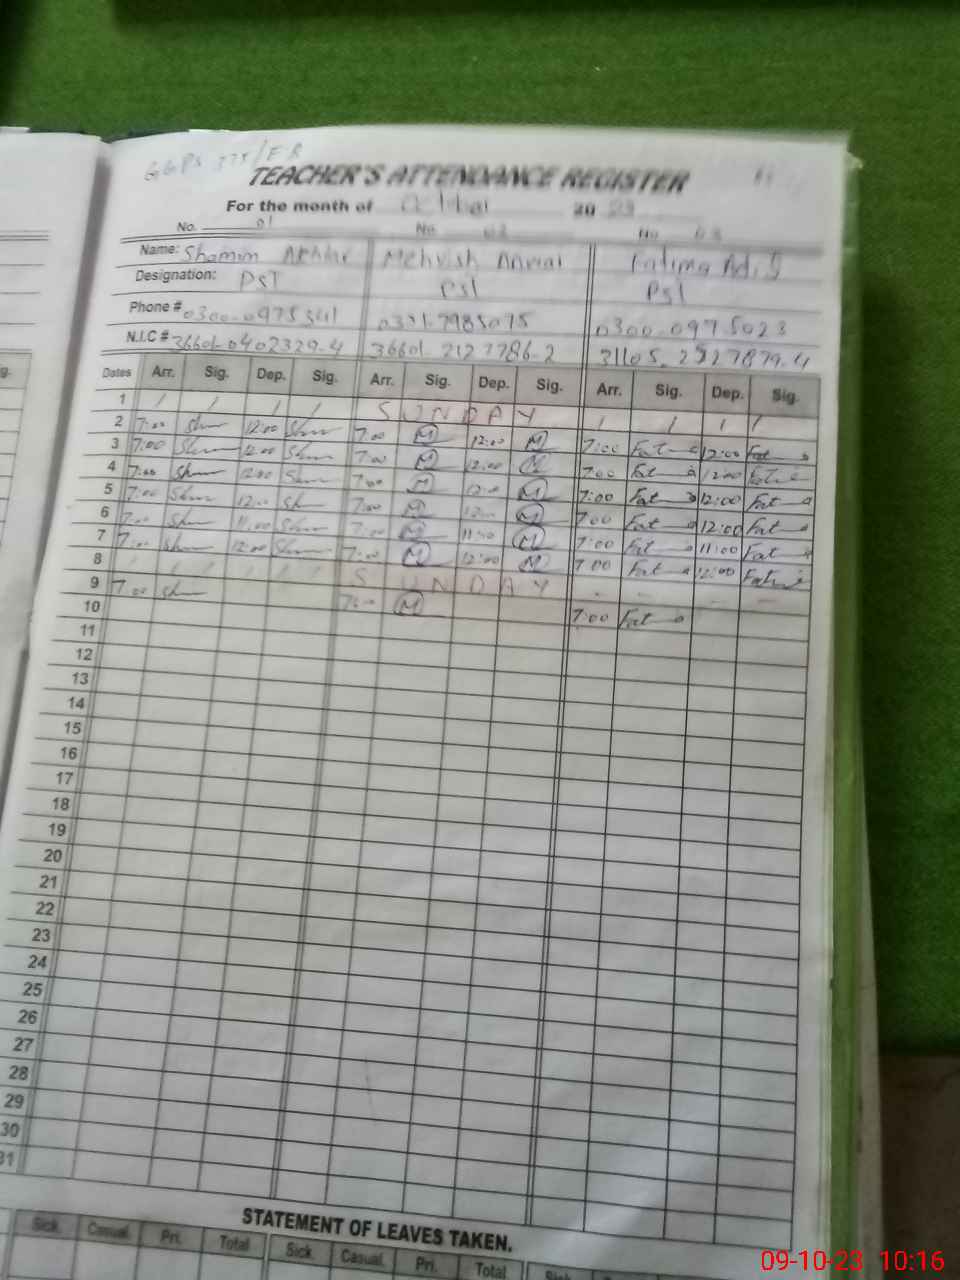 GGPS 375/EB
TEACHER'S ATTENDANCE REGISTER
For the month of October 2023
No. 01 No 02 No 03
Name: Shamim Akhtar Mehvish Fatima
Designation: PST PST PST
Phone # 0300-0975341 0331-7985075 0300-0975023
N.I.C # 36601-0402329-4 36601-2127786-2 31105-2527879-4
Dates Arr. Sig. Dep. Sig. Arr. Sig. Dep. Sig. Arr. Sig. Dep. Sig.
1 / / / / SUNDAY / / / /
2 7:00 Sham 12:00 Sham 7:00 M 12:00 M 7:00 Fat 12:00 Fat
3 7:00 Sham 12:00 Sham 7:00 M 12:00 M 7:00 Fat 12:00 Fat
4 7:00 Sham 12:00 Sham 7:00 M 12:00 M 7:00 Fat 12:00 Fat
5 7:00 Sham 12:00 Sh 7:00 M 12:00 M 7:00 Fat 12:00 Fat
6 7:00 Sham 11:00 Sham 7:00 M 11:00 M 7:00 Fat 11:00 Fat
7 7:00 Sham 12:00 Sham 7:00 M 12:00 M 7:00 Fat 12:00 Fat
8 / / / / SUNDAY - - - -
9 7:00 Sham 7:00 M 7:00 Fat
10
11
12
13
14
15
16
17
18
19
20
21
22
23
24
25
26
27
28
29
30
31
STATEMENT OF LEAVES TAKEN.
Sick. Casual. Pri. Total Sick. Casual. Pri. Total Sick
09-10-23 10:16